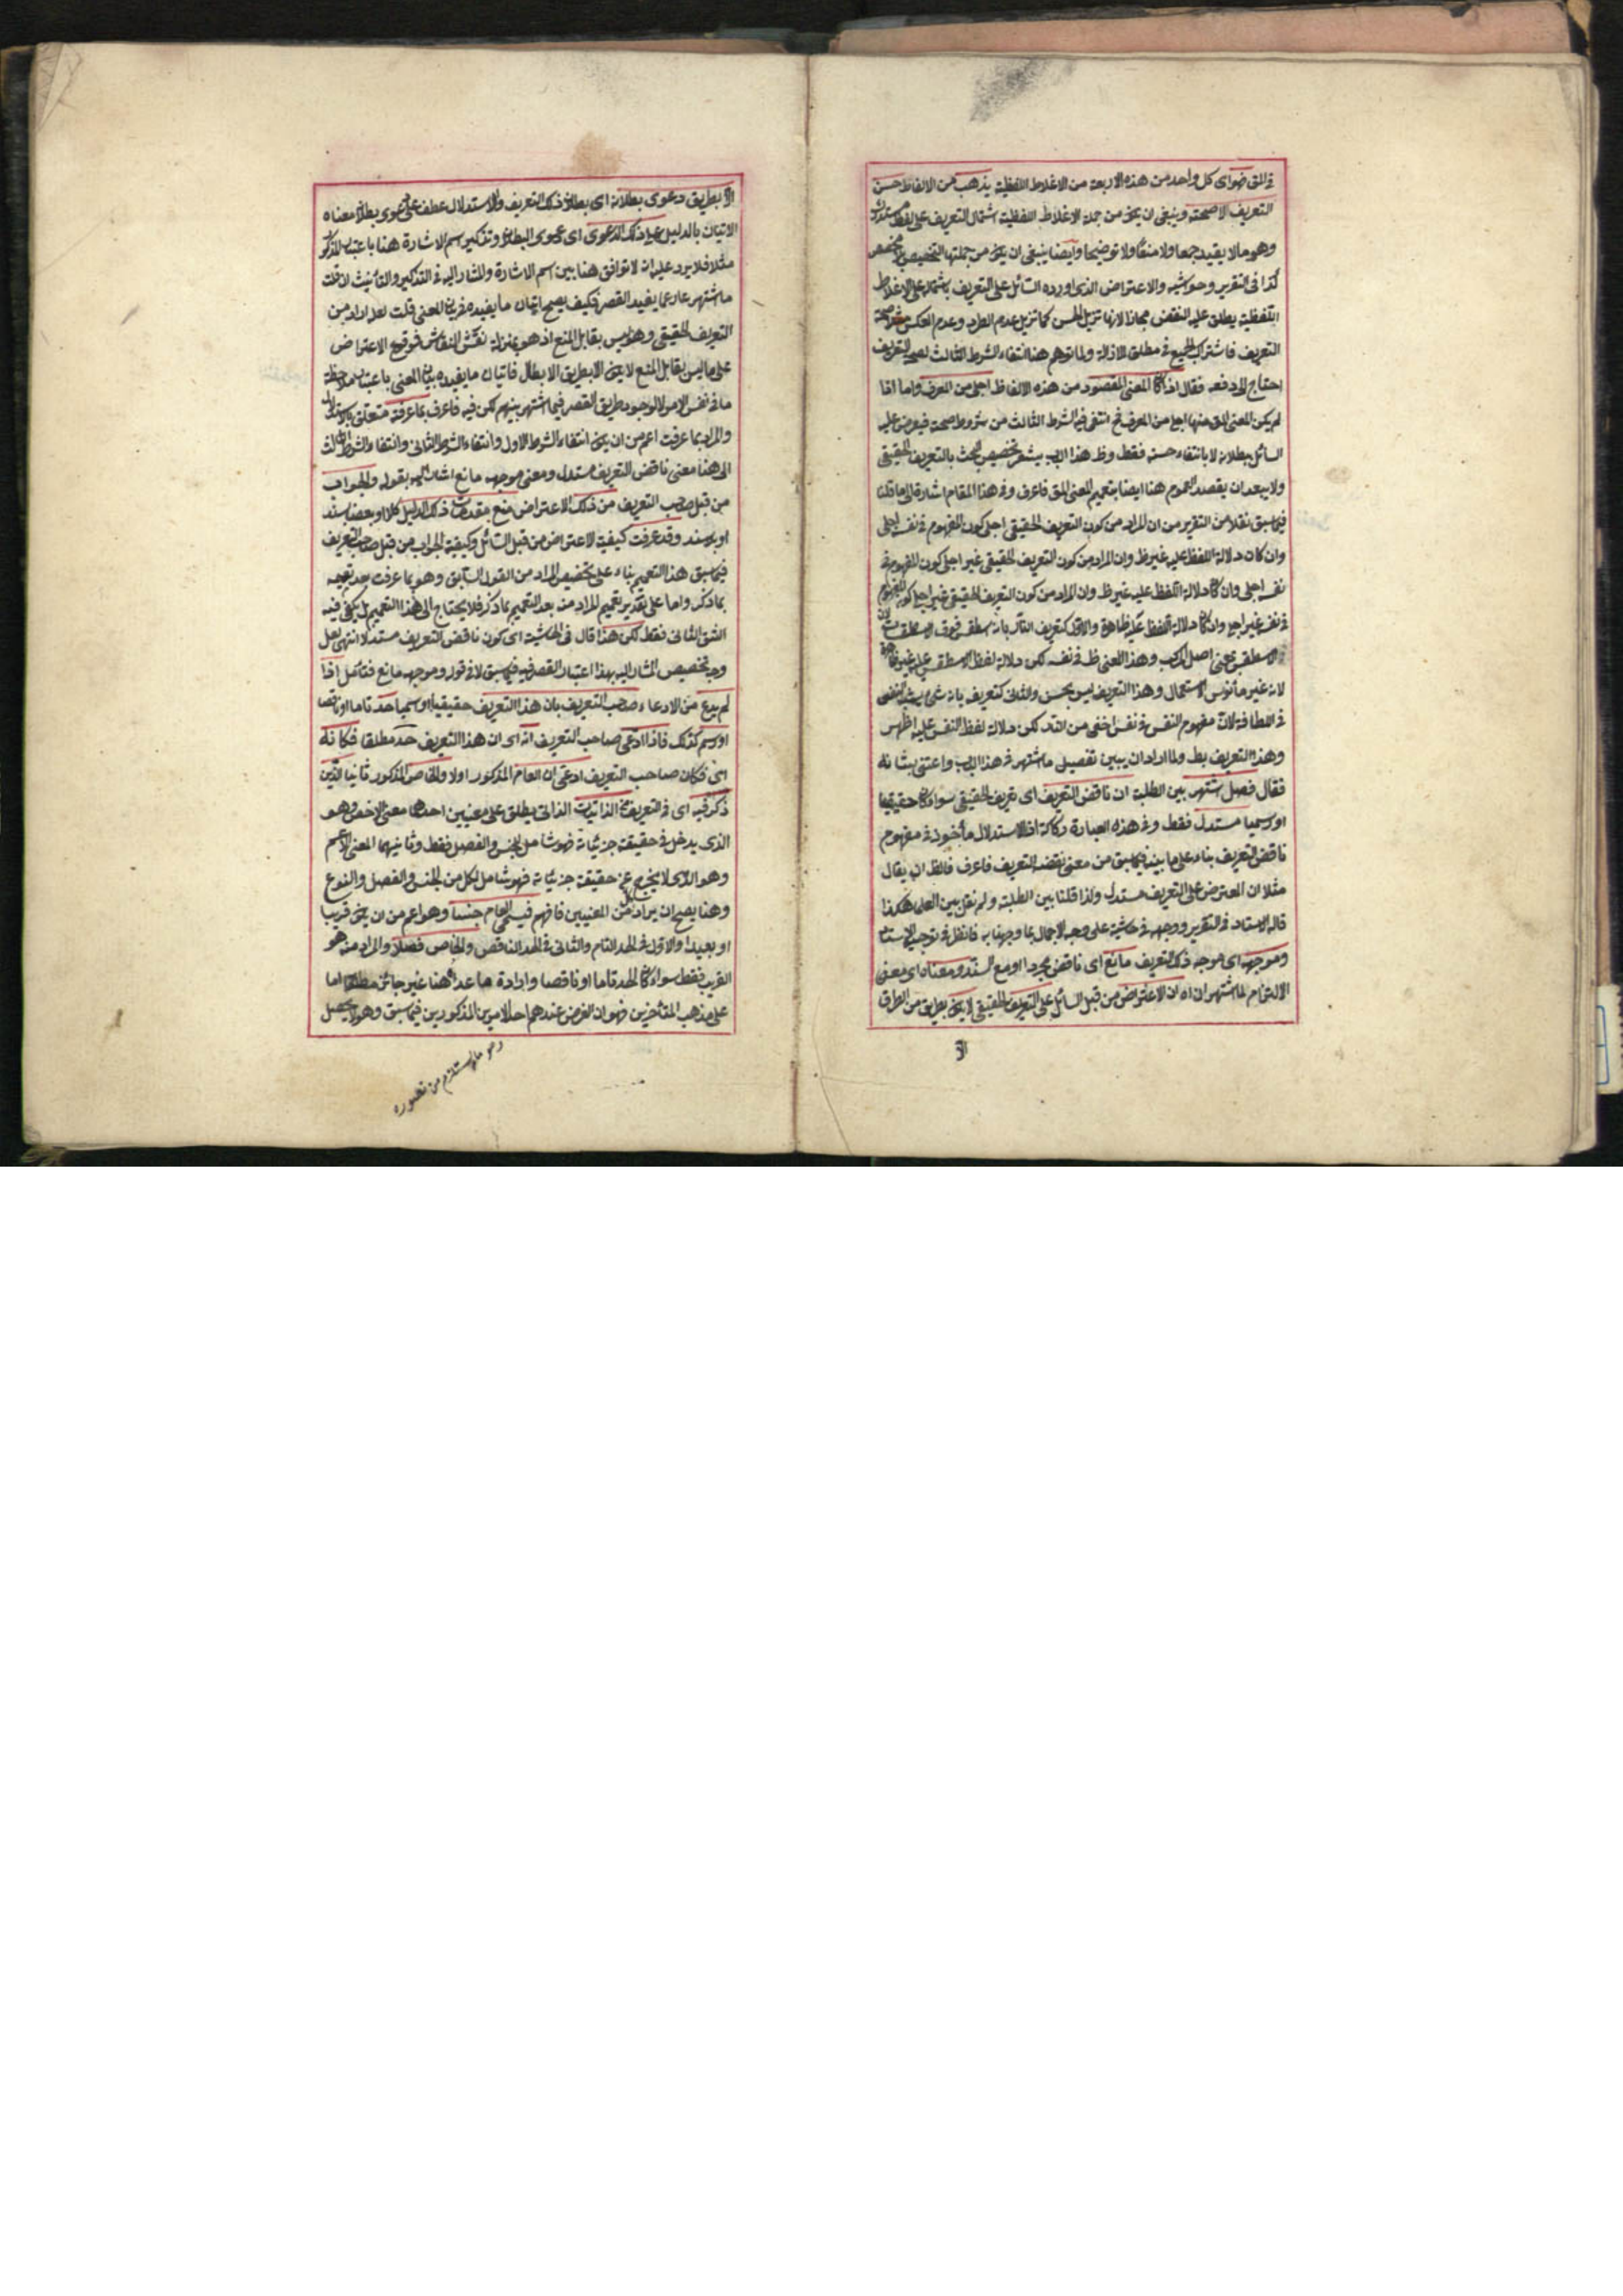 في المتن فهو اى كل واحد من هذه الاربعة من الاغلاط اللفظية يذهب من الالفاظ حسن
التعريف لا صحته وينبغى ان يكون من جملة الاغلاط اللفظية اشتمال التعريف على لفظ مستدرك
وهو ما لا يفيد جمعا ولا منعا ولا توضيحا وايضا ينبغى ان يكون من جملتها التخصيص بلا مخصص
كذا فى التقرير وحواشيه والاعتراض الذى اورده السائل على التعريف باشتماله على الاغلاط
اللفظية يطلق عليه النقض مجازا لانها تزيل الحسن كما تزيل عدم الطرد وعدم العكس صحة
التعريف فاشترك الجميع فى مطلق الازالة ولما توهم هنا انتفاء الشرط الثالث لصحة التعريف
احتاج الى دفعه فقال اذا كان المعنى المقصود من هذه الالفاظ اجلى من المعرف واما اذا
لم يكن المعنى المق منها اجلى من المعرف فح انتفى فيه الشرط الثالث من شروط صحته فيعرض عليه
السائل ببطلانه لا بانتفاء حسنه فقط وظ هذا الب يشعر تخصيص البحث بالتعريف الحقيقى
ولا يبعد ان يقصد العموم هنا ايضا بتعميم المعنى المق فاعرف وفى هذا المقام اشارة الى ما قلنا
فيما سبق نقلا من التقرير من ان المراد من كون التعريف الحقيقى اجلى كون المفهوم فى نفسه اجلى
وان كان دلالة اللفظ عليه غير ظ وان المراد من كون التعريف الحقيقى غير اجلى كون المفهوم فى
نفسه اجلى وان كان دلالة اللفظ عليه غير ظ وان المراد من كون التعريف الحقيقى غير اجلى كون المفهوم
فى نفسه غير اجلى وان كان دلالة اللفظ عليه ظاهرة والاول كتعريف النار بانه اسطقس فوق الاسطقسات
الاسطقس بمعنى اصل المركب وهذا المعنى ظ فى نفسه لكن دلالة لفظ الاسطقس عليه غير ظاهرة
لانه غير مأنوس الاستعمال وهذا التعريف ليس بحسن والثانى كتعريف بانه شئ يشبه النفس
فى اللطافة لان مفهوم النفس فى نفسه اخفى من النار لكن دلالة لفظ النفس عليه اظهر
وهذا التعريف بط ولما اراد ان يبين تفصيل ما اشتهر فى هذا الب واعتنى بشانه
فقال فصل اشتهر بين الطلبة ان ناقض التعريف اى تعريف الحقيقى سواء كان حقيقيا
او رسميا مستدل فقط وفى هذه العبارة ركاكة اذ الاستدلال مأخوذ فى مفهوم
ناقض التعريف بناء على ما بينه فيما سبق من معنى نقضه التعريف فاعرف فالظ ان يقال
مثلا ان المعترض على التعريف مستدل ولذا قلنا بين الطلبة ولم نقل بين العلماء هكذا
قاله الاستاد فى التقرير ووجهه فى حاشيته على وجه الاجمال بما وجهنا به فانظر فى توجيه الاستاد
وموجهه اى موجه ذلك التعريف مانع اى ناقض مجردا او مع السند ومعناه اى معنى
الالتزام لما اشتهر ان اه ان الاعتراض من قبل السائل على التعريف الحقيقى لا يكون بطريق من الطرق
الا
الا بطريق دعوى بطلانه اى بطلان ذلك التعريف والاستدلال عطف على دعوى بطلان معناه
الاتيان بالدليل على ذلك الدعوى اى دعوى البطلان وتذكير اسم الاشارة هنا باعتبار المذكور
مثلا فلا يرد عليه ان لا توافق هنا بين اسم الاشارة والمشار اليه فى التذكير والتأنيث ان قلت
ما اشتهر عار عما يفيد القصر فكيف يصح اتيان ما يفيده فى بيان المعنى قلت لعله اراد من
التعريف الحقيقى وهو ليس بقابل المنع اذ هو بمنزلة نقش النقاش فوقوع الاعتراض
على ما ليس بقابل المنع لا يكون الا بطريق الابطال فاتيان ما يفيده بيان المعنى باعتبار ملاحظة
ما فى نفس الامر لا لوجود طريق القصر فيما اشتهر بينهم لكن فيه فاعرف بما عرفته متعلق بالاستدلال
والمراد بما عرفت اعم من ان يكون انتفاء الشرط الاول وانتفاء الشرط الثانى وانتفاء الشرط الثالث
الى هنا معنى ناقض التعريف مستدل ومعنى موجهه مانع اشار اليه بقوله والجواب
من قبل صاحب التعريف من ذلك الاعتراض منع مقدمات ذلك الدليل كلا او بعضا بسند
او بلا سند وقد عرفت كيفية الاعتراض من قبل السائل وكيفية الجواب من قبل صاحب التعريف
فيما سبق هذا التعميم بناء على تخصيص المراد من القول السابق وهو بما عرفت بعد تعميمه
بما ذكر واما على تقدير تعميم المراد منه بعد التعميم بما ذكر فلا يحتاج الى هذا التعميم بل يكفى فيه
الشق الثانى فقط لكن هذا قال فى الحاشية اى كون ناقض التعريف مستدلا انتهى لعل
وجه تخصيص المشار اليه بهذا اعتبار القصر فيه فيما سبق لا فى قوله وموجهه مانع فتأمل اذا
لم يدع من الادعاء صاحب التعريف بان هذا التعريف حقيقيا او رسميا حد تاما او ناقصا
او رسم كذلك فاذا ادعى صاحب التعريف انه اى ان هذا التعريف حد مطلقا فكانه
اى فكان صاحب التعريف ادعى ان العام المذكور اولا والخاص المذكور ثانيا الذين
ذكر فيه اى فى التعريف من الذاتيات الذاتى يطلق على معنيين احدهما معنى الاخص وهو
الذى يدخل فى حقيقة جزئياته فهو شامل للجنس والفصل فقط وثانيهما المعنى الاعم
وهو الذى لا يخرج عن حقيقة جزئياته فهو شامل لكل من الجنس والفصل والنوع
وهنا يصح ان يراد كل من المعنيين فافهم فيسمى العام جنسا وهو اعم من ان يكون قريبا
او بعيدا والاول فى الحد التام والثانى فى الحد الناقص والخاص فصلا والمراد منه هو
القريب فقط سواء كان الحد تاما او ناقصا وارادة ما عداه هنا غير جائز مطلقا اما
على مذهب المتأخرين فهو ان الغرض عندهم احد الامرين المذكورين فيما سبق وهو لا يحصل
وهو ما يستلزم من تصوره